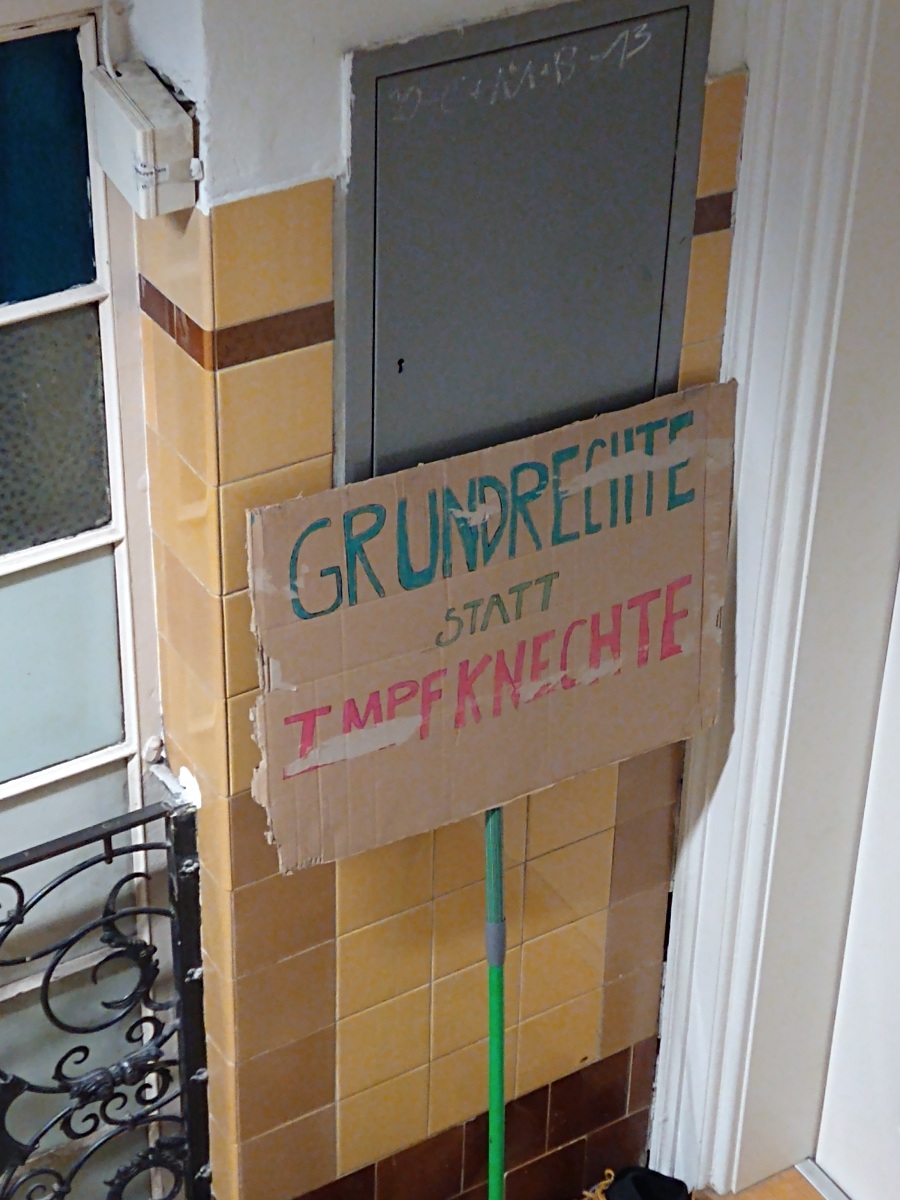 20-C+M+B-13
GRUNDRECHTE
STATT
IMPFKNECHTE